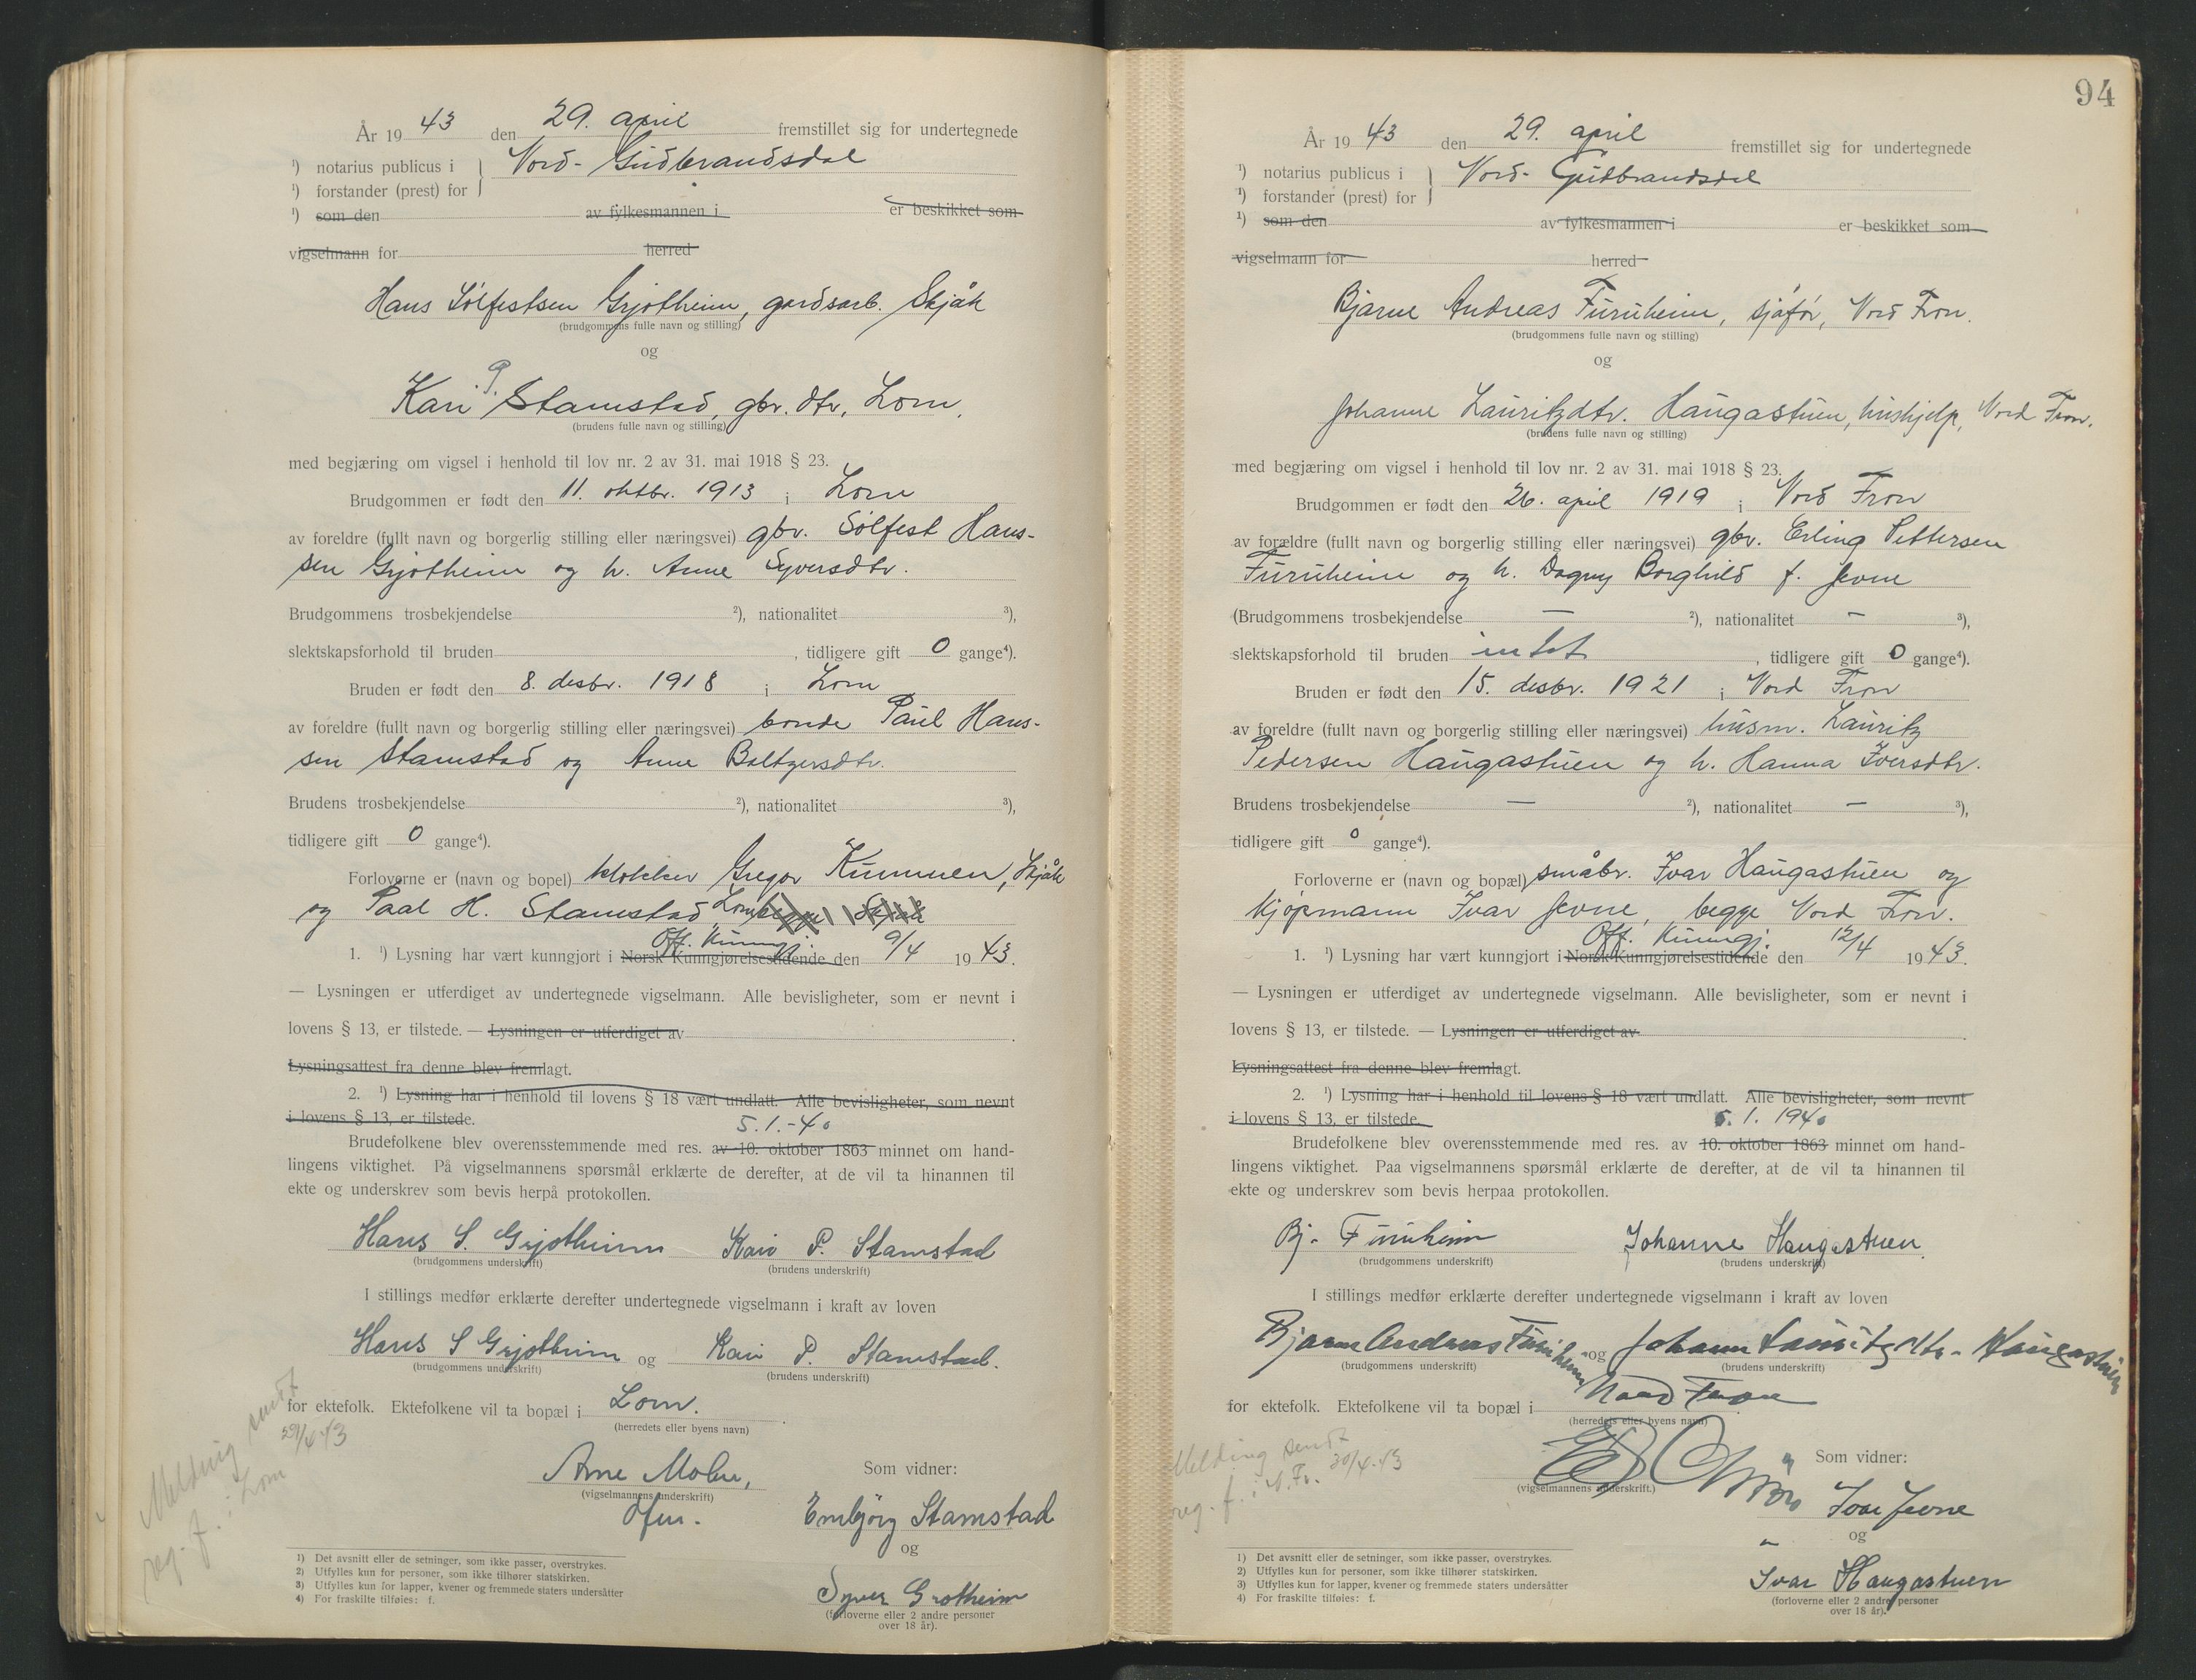 År 19 43 den 29. april fremstillet sig for undertegnede
¹) notarius publicus i } Nord-Gudbrandsdal
¹) forstander (prest) for
¹) som den av fylkesmannen i er beskikket som
vigselmann for herred
Hans Sølfestsen Grjotheim, gardsarb. Skjåk
(brudgommens fulle navn og stilling)
og
Kari P. Stamstad, gbr. dtr, Lom.
(brudens fulle navn og stilling)
med begjæring om vigsel i henhold til lov nr. 2 av 31. mai 1918 § 23.
Brudgommen er født den 11. oktbr. 1913 i Lom
av foreldre (fullt navn og borgerlig stilling eller næringsvei) gbr. Sølfest Hans-
sen Grjotheim og h. Anne Syversdtr.
Brudgommens trosbekjendelse ²), nationalitet ³),
slektskapsforhold til bruden , tidligere gift 0 gange⁴).
Bruden er født den 8. desbr. 1918 i Lom
av foreldre (fullt navn og borgerlig stilling eller næringsvei) bonde Paul Hans-
sen Stamstad og Anne Baltzersdtr.
Brudens trosbekjendelse ²), nationalitet ³),
tidligere gift 0 gange⁴).
Forloverne er (navn og bopel) klokker Gregor Kummen, Skjåk
og Paal H. Stamstad Lom begge Skjåk
Off. Kunngj.
1. ¹) Lysning har vært kunngjort i Norsk Kunngjørelsestidende den 9/4 1943.
— Lysningen er utferdiget av undertegnede vigselmann. Alle bevisligheter, som er nevnt i
lovens § 13, er tilstede. — Lysningen er utferdiget av .
Lysningsattest fra denne blev fremlagt.
2. ¹) Lysning har i henhold til lovens § 18 vært undlatt. Alle bevisligheter, som nevnt
i lovens § 13, er tilstede.
5.1.-40
Brudefolkene blev overensstemmende med res. av 10. oktober 1863 minnet om hand-
lingens viktighet. På vigselmannens spørsmål erklærte de derefter, at de vil ta hinannen til
ekte og underskrev som bevis herpå protokollen.
Hans S. Grjotheim Kari P. Stamstad
(brudgommens underskrift) (brudens underskrift)
I stillings medfør erklærte derefter undertegnede vigselmann i kraft av loven
Hans S Grjotheim og Kari P. Stamstad.
(brudgommens underskrift) (brudens underskrift)
for ektefolk. Ektefolkene vil ta bopæl i Lom.
(herredets eller byens navn)
Melding sendt
reg. f. i Lom 29/4 43
Arne Mohn, Som vidner:
(vigselmannens underskrift)
Embjørg Stamstad
og
Syver Grotheim
(forloverne eller 2 andre personer
over 18 år).
1) Det avsnitt eller de setninger, som ikke passer, overstrykes.
2) Utfylles kun for personer, som ikke tilhører statskirken.
3) Utfylles kun for lapper, kvener og fremmede staters undersåtter
4) For fraskilte tilføies: f.
94
År 19 43 den 29. april fremstillet sig for undertegnede
¹) notarius publicus i } Nord-Gudbrandsdal
¹) forstander (prest) for
¹) som den av fylkesmannen i er beskikket som
vigselmann for herred
Bjarne Andreas Furuheim, sjåfør, Nord Fron.
(brudgommens fulle navn og stilling)
og
Johanne Lauritzdtr. Haugastuen, hushjelp, Nord Fron.
(brudens fulle navn og stilling)
med begjæring om vigsel i henhold til lov nr. 2 av 31. mai 1918 § 23.
Brudgommen er født den 26. april 1919 i Nord Fron
av forældre (fullt navn og borgerlig stilling eller næringsvei) gbr. Erling Pettersen
Furuheim og h. Dagny Borghild f. Jevne
(Brudgommens trosbekjendelse — ²), nationalitet — ³),
slektskapsforhold til bruden intet , tidligere gift 0 gange⁴).
Bruden er født den 15. desbr. 1921 i Nord Fron
av foreldre (fullt navn og borgerlig stilling eller næringsvei) husm. Lauritz
Pedersen Haugastuen og h. Hanna Iversdtr.
Brudens trosbekjendelse — ²), nationalitet — ³),
tidligere gift 0 gange⁴).
Forloverne er (navn og bopæl) småbr. Ivar Haugastuen og
kjøpmann Ivar Jevne, begge Nord Fron.
Off. Kunngj.
1. ¹) Lysning har vært kunngjort i Norsk Kunngjørelsestidende den 12/4 1943.
— Lysningen er utferdiget av undertegnede vigselmann. Alle bevisligheter, som er nevnt i
lovens § 13, er tilstede. — Lysningen er utferdiget av .
Lysningsattest fra denne blev fremlagt.
2. ¹) Lysning har i henhold til lovens § 18 vært undlatt. Alle bevisligheter, som nevnt
i lovens § 13, er tilstede.
5. 1. 1940
Brudefolkene blev overensstemmende med res. av 10. oktober 1863 minnet om hand-
lingens viktighet. Paa vigselmannens spørsmål erklærte de derefter, at de vil ta hinannen til
ekte og underskrev som bevis herpaa protokollen.
Bj. Furuheim Johanne Haugastuen
(brudgommens underskrift) (brudens underskrift)
I stillings medfør erklærte derefter undertegnede vigselmann i kraft av loven
Bjarne Andreas Furuheim og Johanne Lauritzdtr. Haugastuen
(brudgommens underskrift) (brudens underskrift)
for ektefolk. Ektefolkene vil ta bopæl i Nord Fron
(herredets eller byens navn)
Melding sendt
reg. f. i N. Fr. 30/4. 43
Som vidner:
(vigselmannens underskrift.)
Ivar Jevne
og
Ivar Haugastuen
(forloverne eller 2 andre personer
over 18 år).
1) Det avsnitt eller de setninger, som ikke passer, overstrykes.
2) Utfylles kun for personer, som ikke tilhører statskirken.
3) Utfylles kun for lapper, kvener og fremmede staters undersåtter
4) For fraskilte tilføies: f.